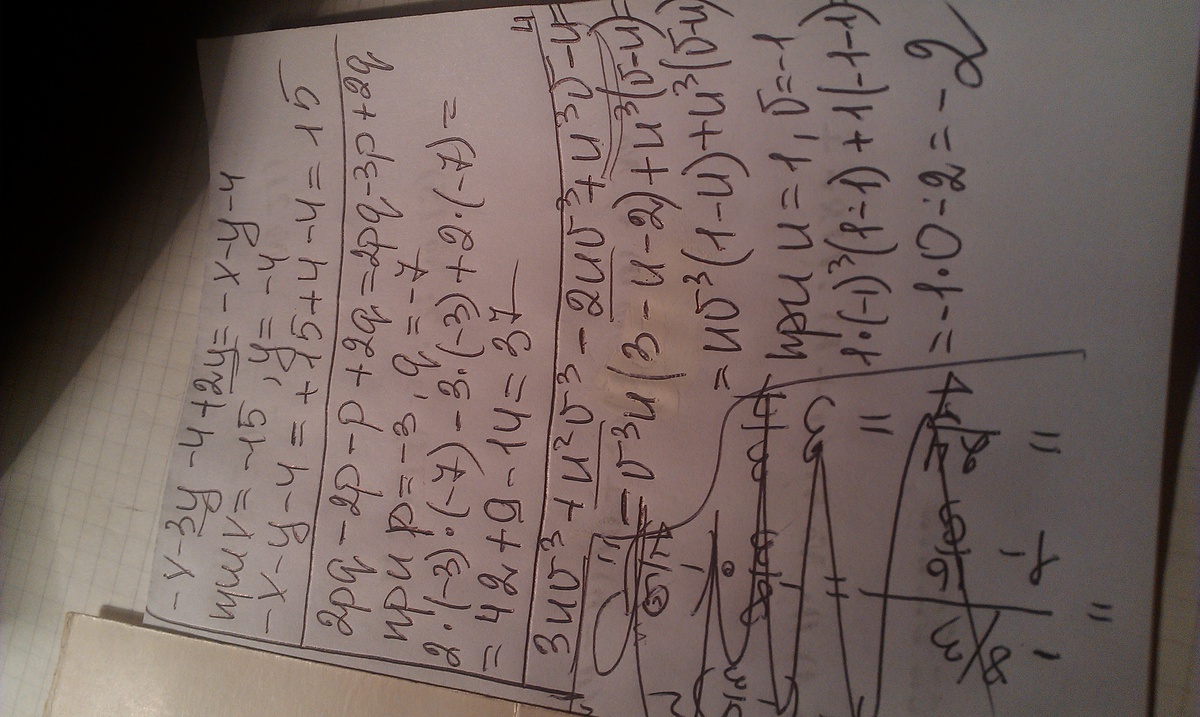 -x-3y-4+2y=-x-y-4
при x=-15, y=-4
-x-y-4=+15+4-4=15
2pq-2p-p+2q=2pq-3p+2q
при p=-3, q=-7
2·(-3)·(-7)-3·(-3)+2·(-7)=
=42+9-14=37
3uv³+u²v³-2uv³+u³v-u⁴
=v³u(3-u-2)+u³(v-u)=
=uv³(1-u)+u³(v-u)
при u=1, v=-1
1·(-1)³(1-1)+1(-1-1)
=-1·0-2=-2